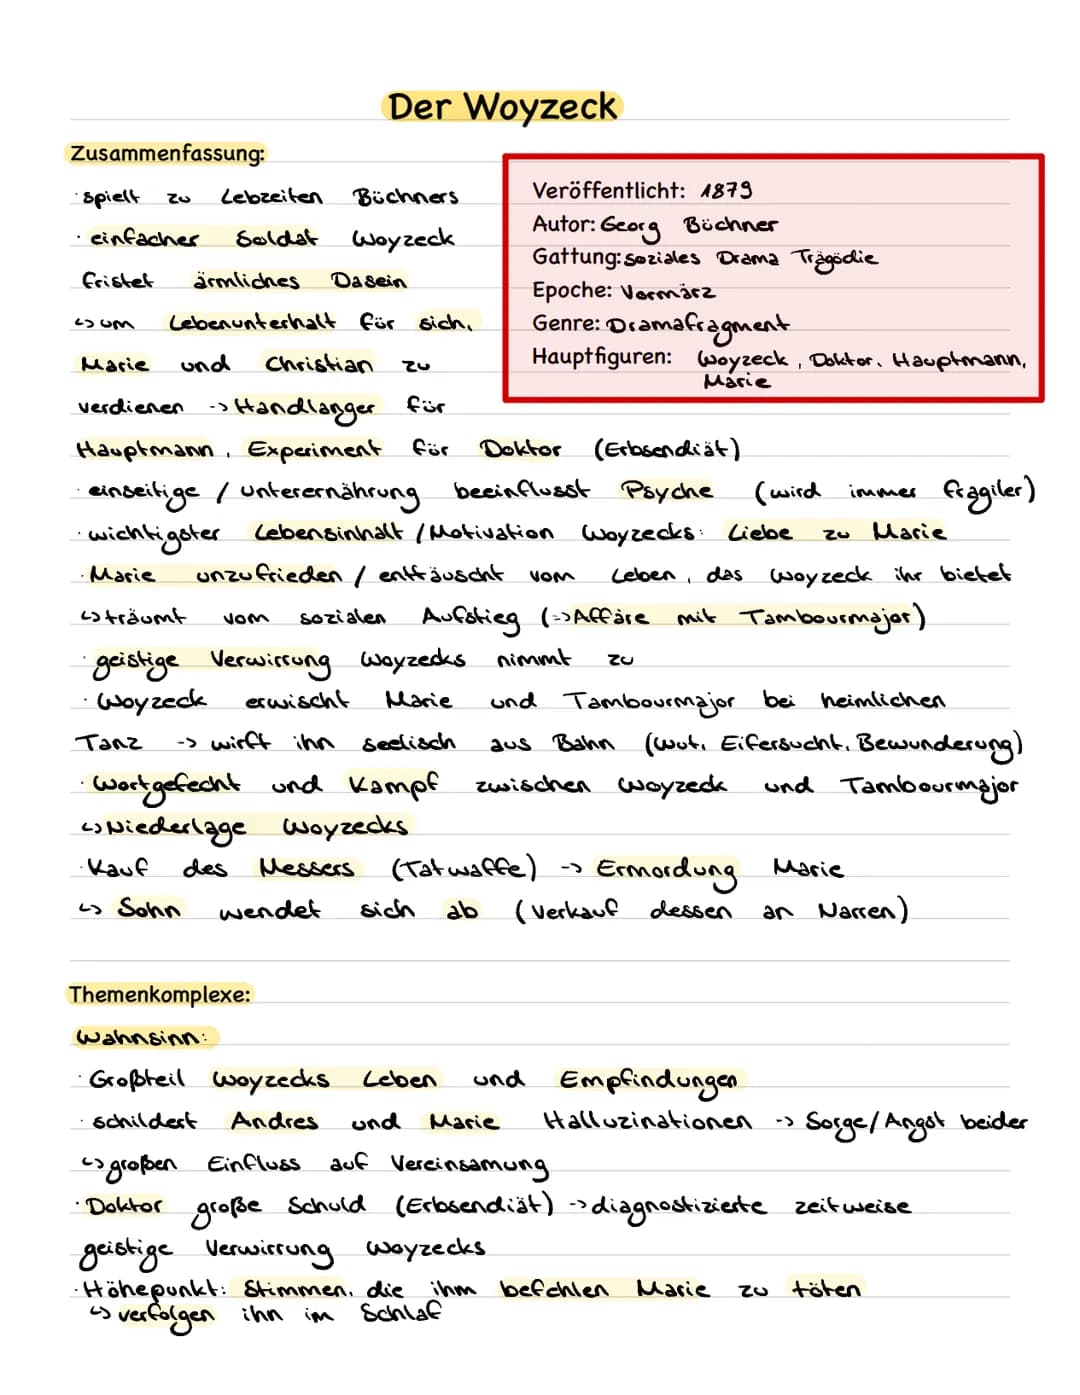 Der Woyzeck
Zusammenfassung:
· spielt zu Lebzeiten Büchners
· einfacher Soldat Woyzeck
fristet ärmliches Dasein
↳ um Lebenunterhalt für sich,
Marie und Christian zu
verdienen -> Handlanger für
Veröffentlicht: 1879
Autor: Georg Büchner
Gattung: soziales Drama Tragödie
Epoche: Vormärz
Genre: Dramafragment
Hauptfiguren: Woyzeck, Doktor, Hauptmann,
Marie
Hauptmann, Experiment für Doktor (Erbsendiät)
· einseitige / Unterernährung beeinflusst Psyche (wird immer fragiler)
· wichtigster Lebensinhalt / Motivation Woyzecks: Liebe zu Marie
· Marie unzufrieden / enttäuscht vom Leben, das Woyzeck ihr bietet
↳ träumt vom sozialen Aufstieg (-> Affäre mit Tambourmajor)
· geistige Verwirrung Woyzecks nimmt zu
· Woyzeck erwischt Marie und Tambourmajor bei heimlichen
Tanz -> wirft ihn seelisch aus Bahn (Wut, Eifersucht, Bewunderung)
· Wortgefecht und Kampf zwischen Woyzeck und Tambourmajor
↳ Niederlage Woyzecks
· Kauf des Messers (Tatwaffe) -> Ermordung Marie
↳ Sohn wendet sich ab (Verkauf dessen an Narren)
Themenkomplexe:
Wahnsinn:
· Großteil Woyzecks Leben und Empfindungen
· schildert Andres und Marie Halluzinationen -> Sorge/Angst beider
↳ großen Einfluss auf Vereinsamung
· Doktor große Schuld (Erbsendiät) -> diagnostizierte zeitweise
geistige Verwirrung Woyzecks
· Höhepunkt: Stimmen, die ihm befehlen Marie zu töten
↳ verfolgen ihn im Schlaf